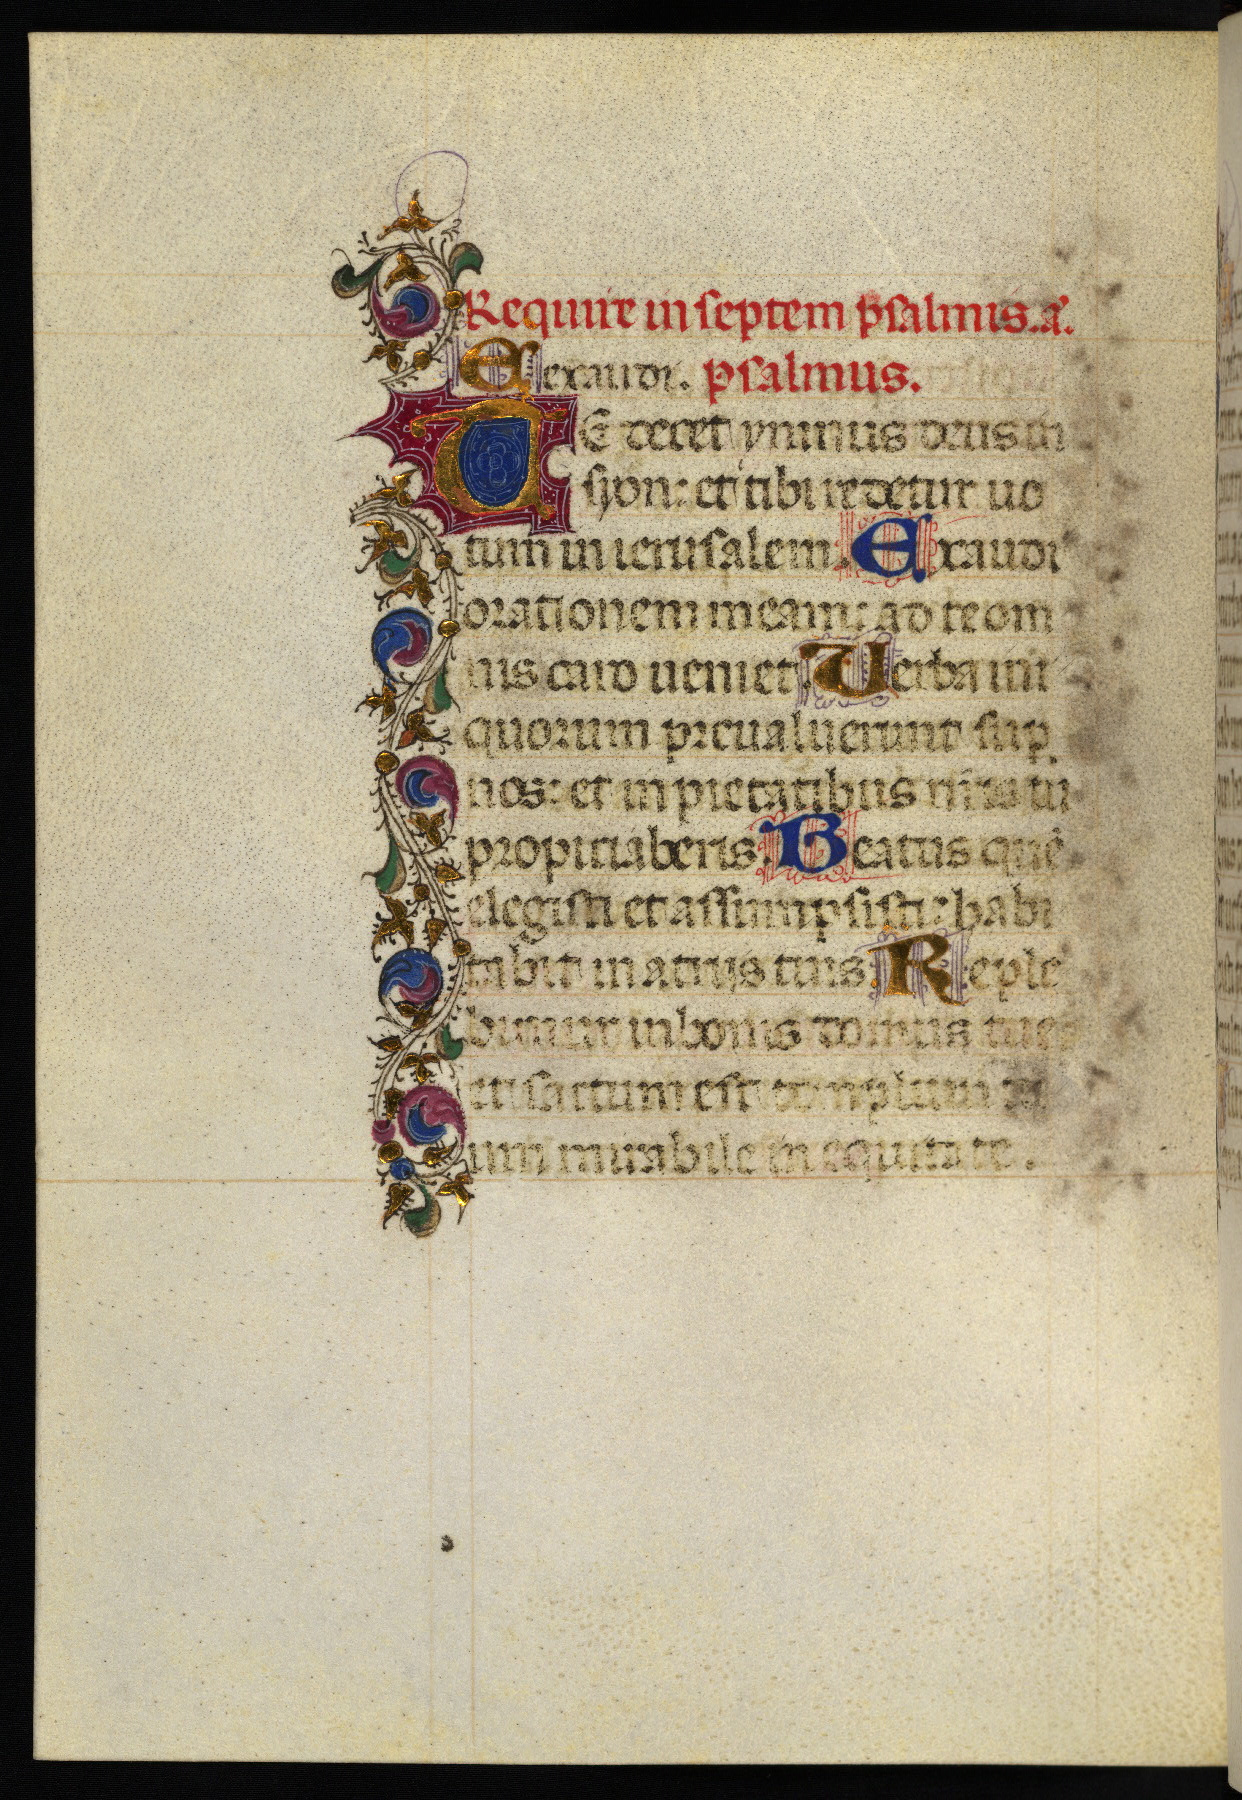 Require in septem psalmis. a͞.
E exaudi. psalmus.
TE decet ymnus deus in
syon: et tibi redetur uo
tum in ierusalem. Exaudi
orationem meam: ad te om
nis caro ueniet. Uerba ini
quorum preualuerunt sup
nos: et in pietatibus nr̃is tu
propitiaberis. Beatus quẽ
elegisti et assumpsisti: habi
tabit in atrijs tuis. Reple
bimur in bonis domus tue
est templum
um mirabile in equitate.